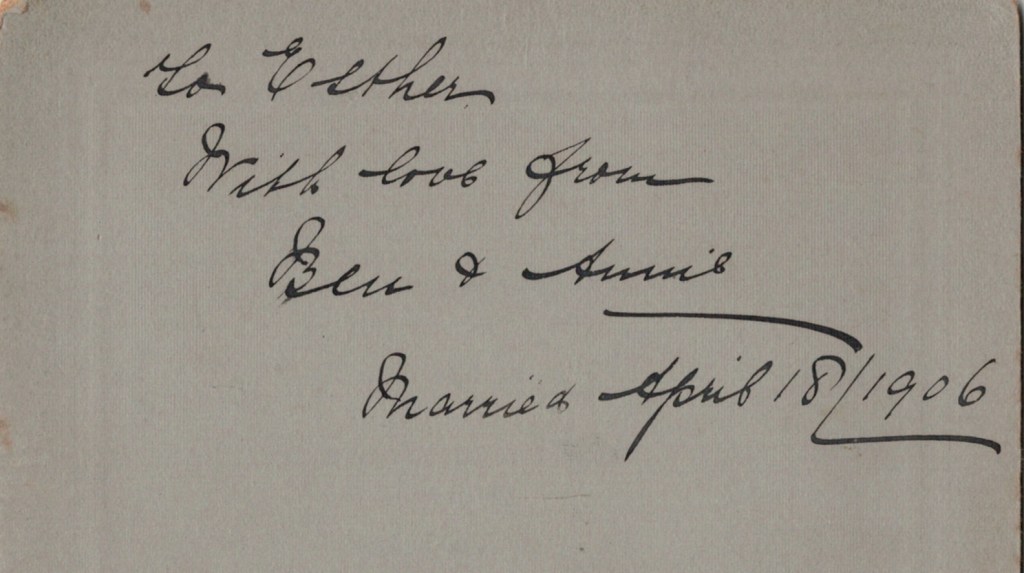 To Esther
With love from
Ben & Annie
Married April 18/1906